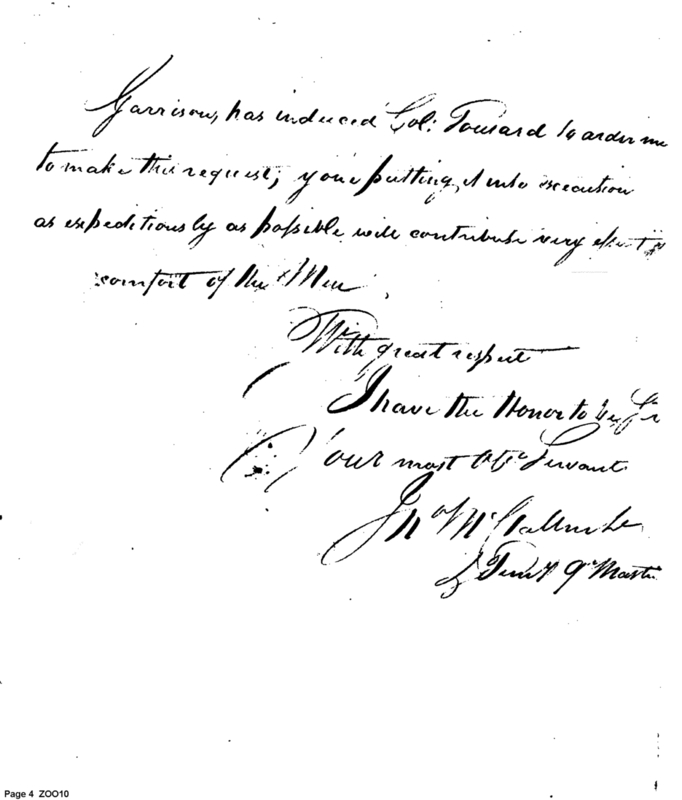 Garrison, has induced Col: Tousard to order me
to make this request; your putting it into execution
as expeditiously as possible will contribute very
comfort of the Men
With great respect
I have the Honor to be, Sir
Your most Obt. Servant
Jno
Qr Mastr
Page 4 ZOO10